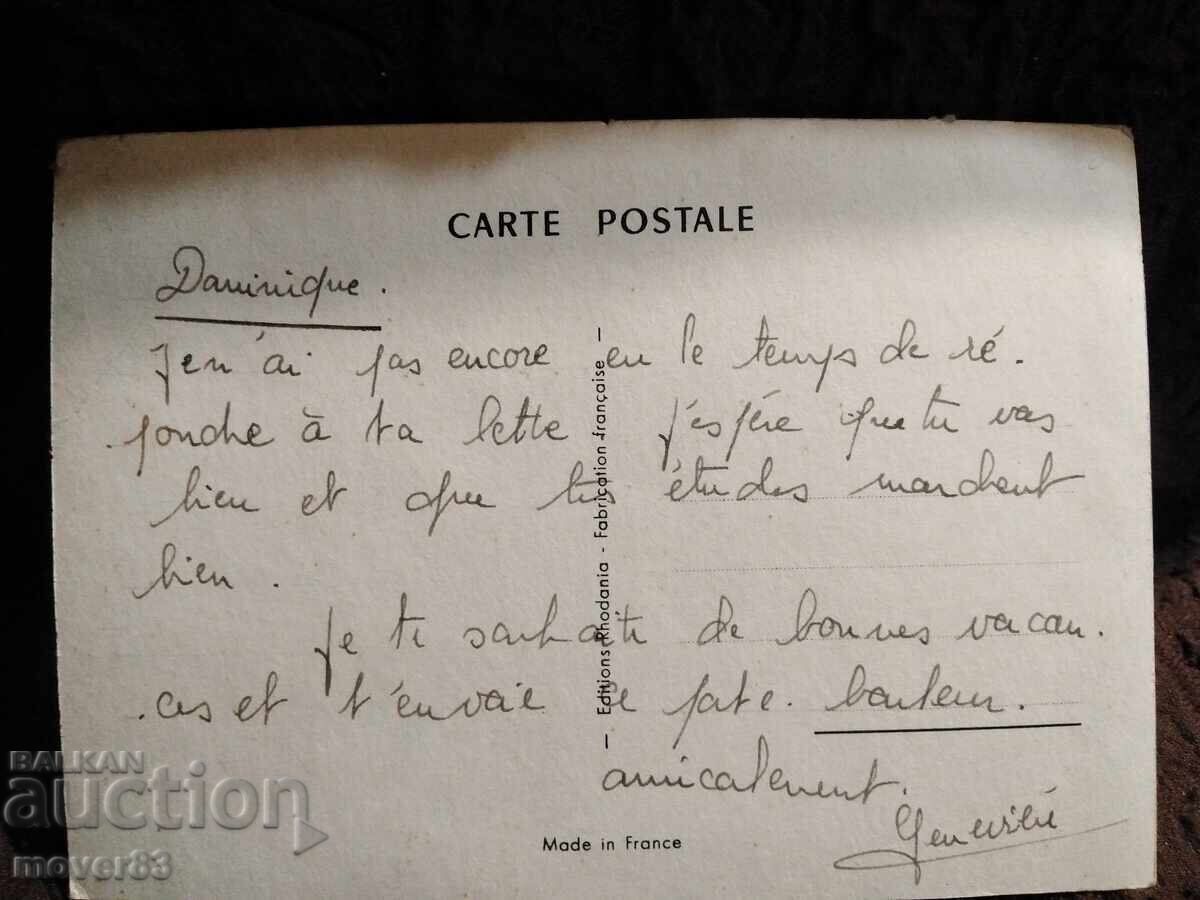 CARTE POSTALE
Dominique.
Je n'ai pas encore eu le temps de ré-
pondre à ta lettre J'espère que tu vas
bien et que tes études marchent
bien.
Je te souhaite de bonnes vacan-
ces et t'envoie ce porte-bonheur.
amicalement.
Geneviève
Editions Rhodania - Fabrication française
Made in France
BALKAN
auction
mover83